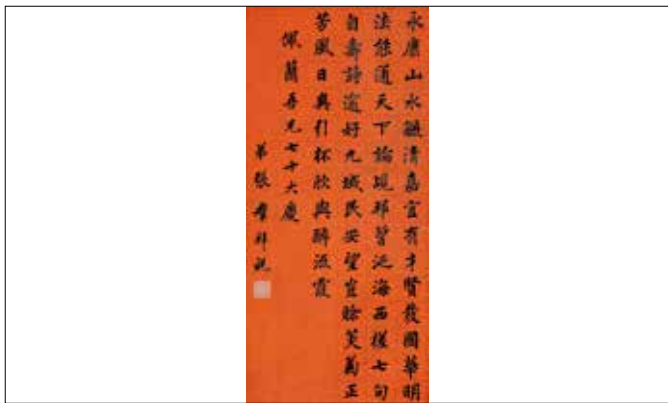 永康山水毓清嘉宜有才賢發國華明
法能通天下論邦曾泛海西槎七旬
自壽詩遒好九域民安望豈賒菊正
芳風日美引杯欣與醉流霞
佩蘭吾兄七十大慶
弟張羣拜祝